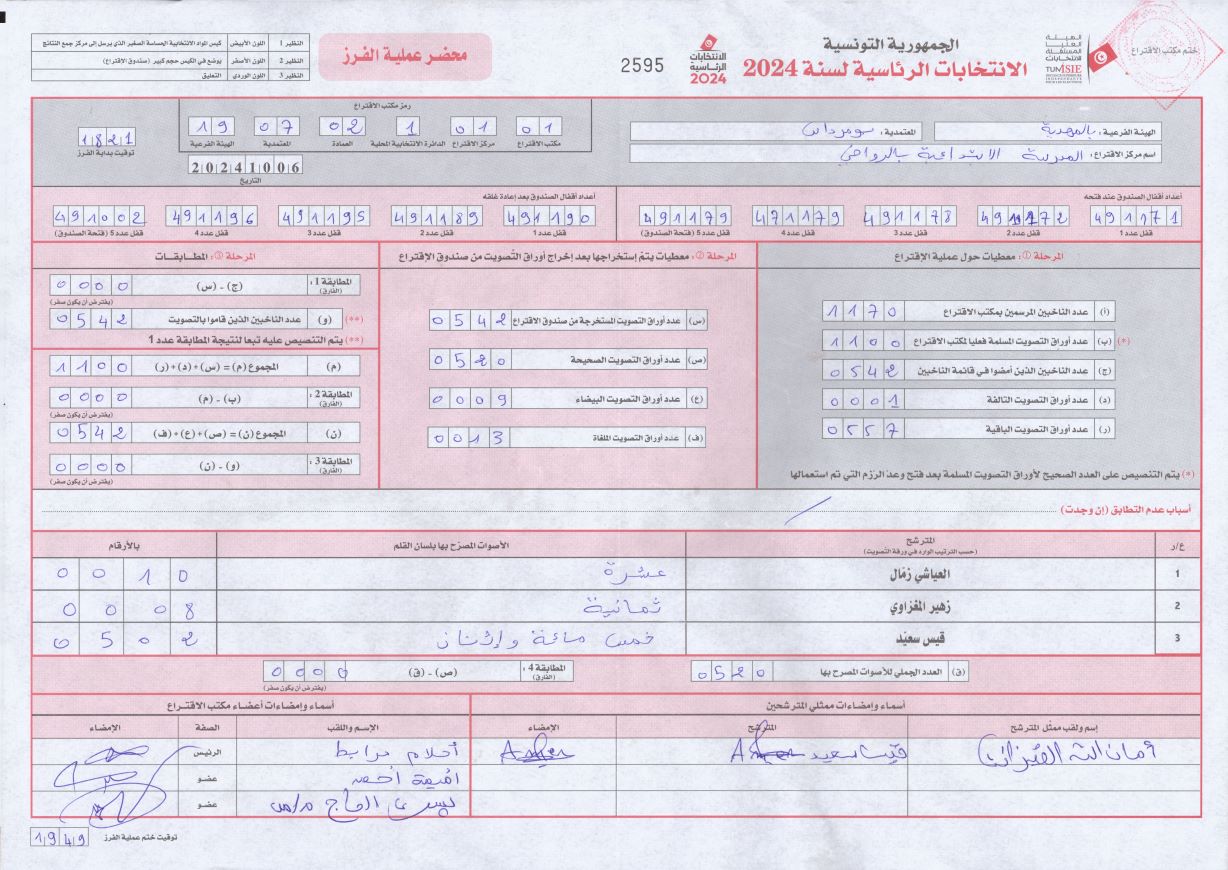 ختم مكتب الاقتراع
الهيئة العليا المستقلة للانتخابات
TUN ISIE
الجمهورية التونسية
الانتخابات الرئاسية لسنة 2024
الانتخابات الرئاسية 2024
2595
محضر عملية الفرز
النظير 1 اللون الأبيض كيس المواد الانتخابية الحساسة الصغير الذي يرسل إلى مركز جمع النتائج
النظير 2 اللون الأصفر يوضع في الكيس حجم كبير (صندوق الاقتراع)
النظير 3 اللون الوردي التعليق
الهيئة الفرعية : بالمهدية
المعتمدية : سومرداس
اسم مركز الاقتراع : المدرسة الابتدائية بالرواضي
رمز مكتب الاقتراع
01 01 1 02 07 19
مكتب الاقتراع مركز الاقتراع الدائرة الانتخابية المحلية العمادة المعتمدية الهيئة الفرعية
20241006
التاريخ
1821
توقيت بداية الفرز
أعداد أقفال الصندوق عند فتحه
491171 491178 471179 491179
قفل عدد 1 قفل عدد 2 قفل عدد 3 قفل عدد 4 قفل عدد 5 (فتحة الصندوق)
أعداد أقفال الصندوق بعد إعادة غلقه
491190 491189 491195 491196 491002
قفل عدد 1 قفل عدد 2 قفل عدد 3 قفل عدد 4 قفل عدد 5 (فتحة الصندوق)
المرحلة ①: معطيات حول عملية الاقتراع
(أ) عدد الناخبين المرسمين بمكتب الاقتراع 1170
(*) (ب) عدد أوراق التصويت المسلمة فعليا لمكتب الاقتراع 1100
(ج) عدد الناخبين الذين أمضوا في قائمة الناخبين 0542
(د) عدد أوراق التصويت التالفة 0001
(ر) عدد أوراق التصويت الباقية 0557
(*) يتم التنصيص على العدد الصحيح لأوراق التصويت المسلمة بعد فتح وعد الرزم التي تم استعمالها
المرحلة ②: معطيات يتم إستخراجها بعد إخراج أوراق التصويت من صندوق الاقتراع
(س) عدد أوراق التصويت المستخرجة من صندوق الاقتراع 0542
(ص) عدد أوراق التصويت الصحيحة 0520
(ع) عدد أوراق التصويت البيضاء 0009
(ف) عدد أوراق التصويت الملغاة 0013
المرحلة ③: المطابقات
المطابقة 1 : (الفارق) (ج) - (س) 0000
(يفترض أن يكون صفر)
(**) (و) عدد الناخبين الذين قاموا بالتصويت 0542
(**) يتم التنصيص عليه تبعا لنتيجة المطابقة عدد 1
(م) المجموع (م) = (س) + (د) + (ر) 1100
المطابقة 2 : (الفارق) (ب) - (م) 0000
(يفترض أن يكون صفر)
(ن) المجموع (ن) = (ص) + (ع) + (ف) 0542
المطابقة 3 : (الفارق) (و) - (ن) 0000
(يفترض أن يكون صفر)
أسباب عدم التطابق (إن وجدت)
ع/د المترشح (حسب الترتيب الوارد في ورقة التصويت) الأصوات المصرّح بها بلسان القلم بالأرقام
1 العياشي زمّال عشرة 0010
2 زهير المغزاوي ثمانية 0008
3 قيس سعيّد خمس مائة وإثنان 0502
(ق) العدد الجملي للأصوات المصرح بها 0520
المطابقة 4 : (الفارق) (ص) - (ق) 0000
(يفترض أن يكون صفر)
أسماء وإمضاءات ممثلي المترشحين
إسم ولقب ممثل المترشح المترشح الإمضاء
قيس سعيد
أسماء وإمضاءات أعضاء مكتب الاقتراع
الإسم واللقب الصفة الإمضاء
أحلام مرابط الرئيس
عضو
عضو
توقيت ختم عملية الفرز 1949